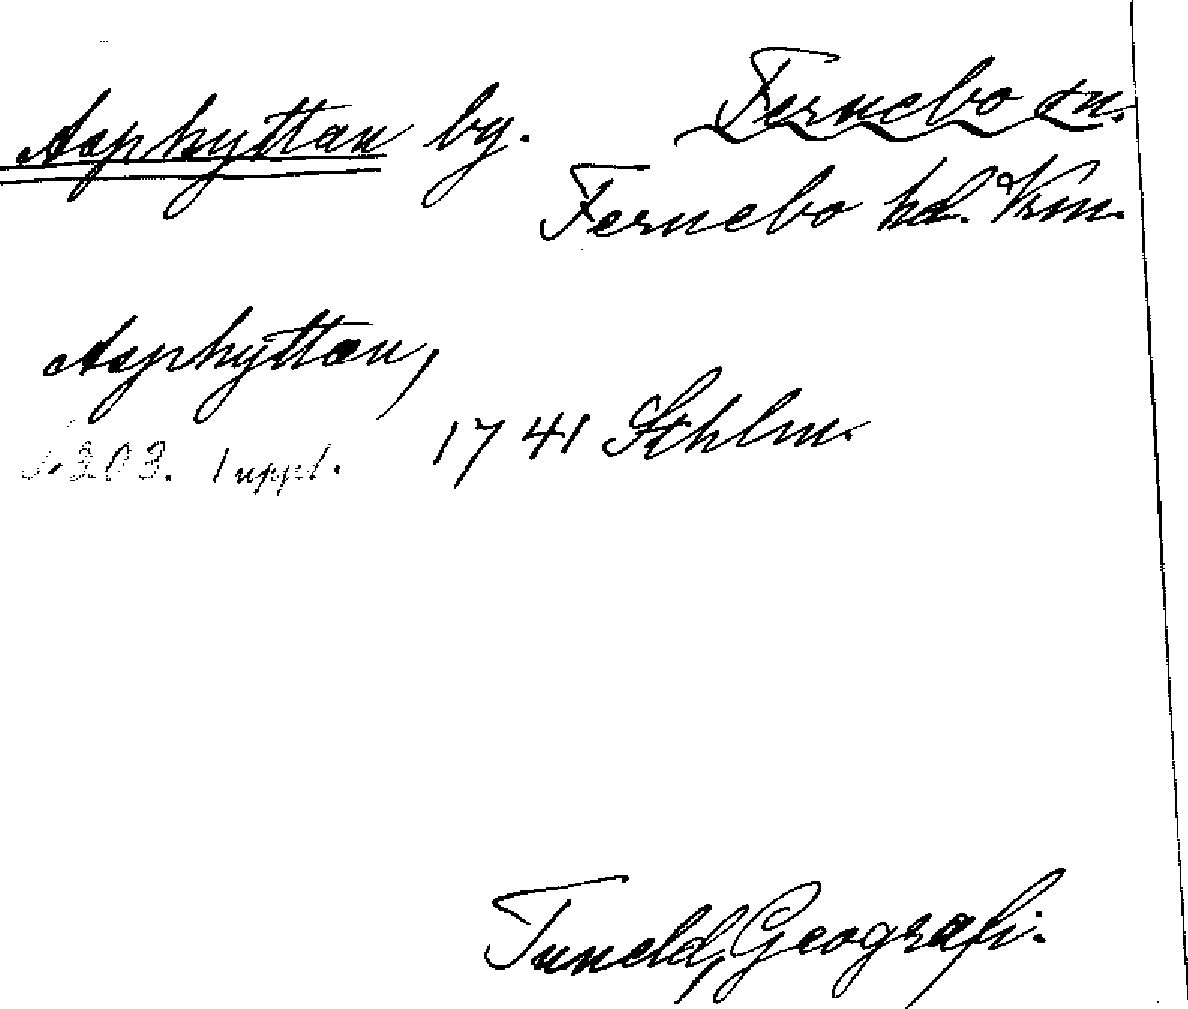 Asphyttan by. Fernebo sn.
Fernebo hd. Vrm.
Asphyttan,
s. 203. 1 uppl. 1741 Sthlm.
Tuneld, Geografi.